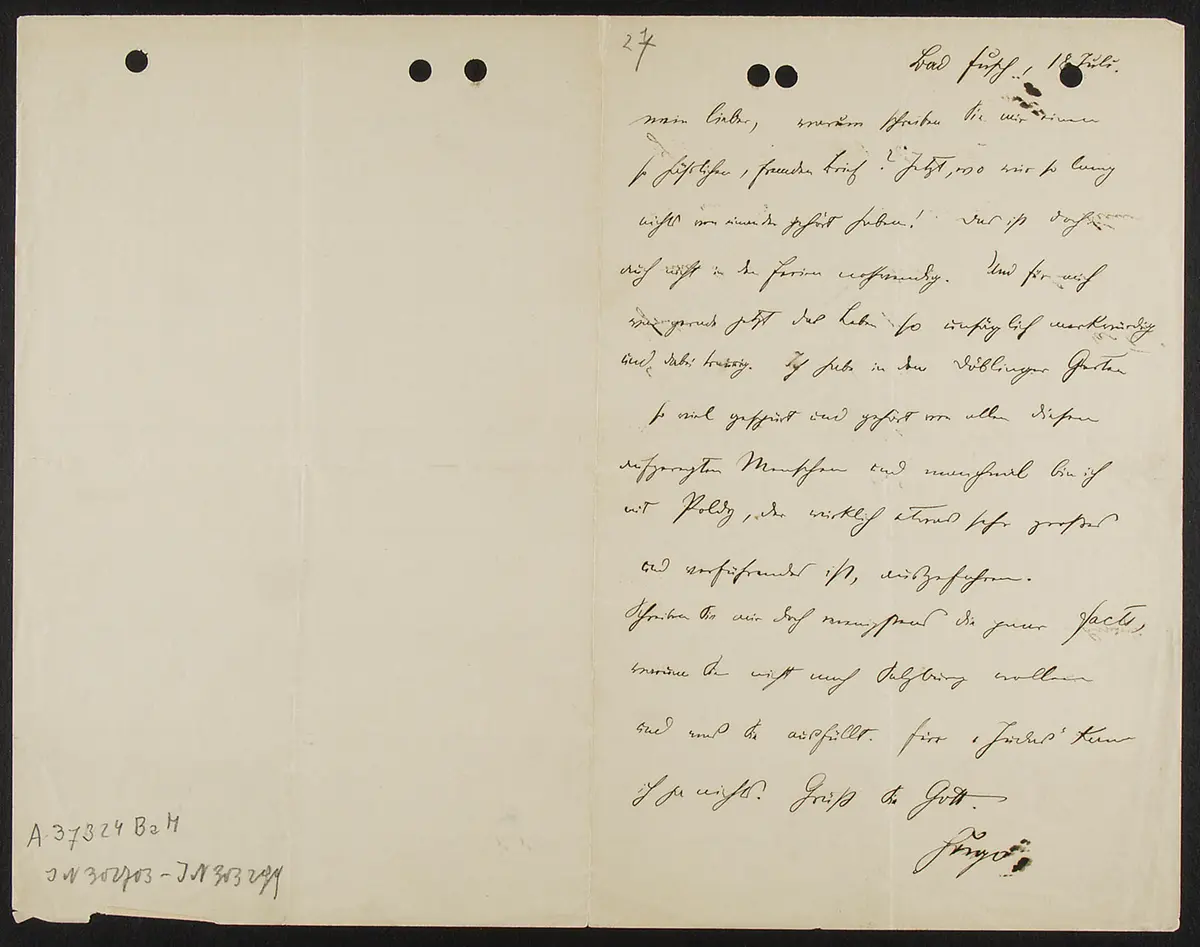 27
Bad Fusch, 18 Juli.
mein lieber, warum schreiben Sie mir einen
so hässlichen, fremden Brief? Jetzt, wo wir so lang
nichts von einander gehört haben! Das ist doch
auch nicht in den Ferien nothwendig. Und für mich
war gerade jetzt das Leben so unsäglich merkwürdig
und dabei traurig. Ich habe in dem Döblinger Garten
so viel gespürt und gehört von allen diesen
aufgeregten Menschen und manchmal bin ich
mit Poldy, der wirklich etwas sehr großes
und verführendes ist, ausgefahren.
Schreiben Sie mir doch wenigstens die paar facts,
warum Sie nicht nach Salzburg wollen
und was Sie ausfüllt. Für „Judas“ kann
ich ja nichts. Grüß Sie Gott.
Hugo
A 37324 BaM
JN 302703 – JN 303299